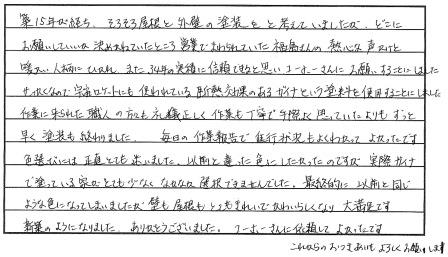 築15年が経ち、そろそろ屋根と外壁の塗装をと考えていましたが、どこに
お願いしていいか決めかねていたところ営業でまわられていた福島さんの熱心な声かけと
暖かい人柄にひかれ、また34年の実績に信頼できると思いコーホーさんにお願いすることにしました
せっかくなので宇宙ロケットにも使われている断熱効果のあるガイナという塗料を使用することにしました
作業に来られた職人の方々も礼儀正しく作業も丁寧で手際よく思っていたよりもずっと
早く塗装も終わりました。 毎日の作業報告で進行状況もよくわかってよかったです
色選びには正直とても迷いました。以前と違った色にしたかったのですが実際ガイナ
で塗っている家がとても少なくなかなか選択できませんでした。最終的に以前と同じ
ような色になってしまいましたが壁も屋根もとってもきれいでかわいらしくなり大満足です
新築のようになりました。ありがとうございました。コーホーさんに依頼してよかったです
これからのおつきあいもよろしくお願いします